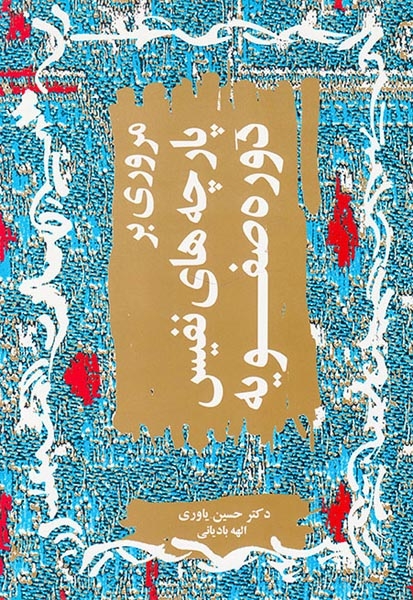 مروری بر
پارچه های نفیس
دوره صفویه
دکتر حسین یاوری
الهه بادبانی